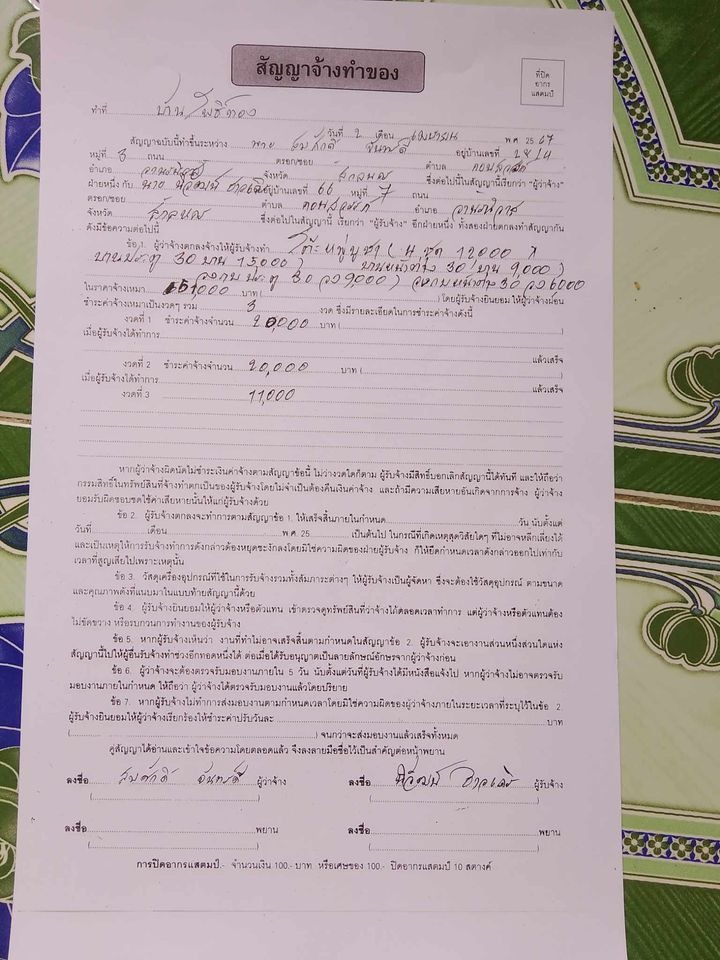 สัญญาจ้างทำของ
ที่ปิด
อากร
แสตมป์
ทำที่ บ้านโพธิ์ทอง
วันที่ 2 เดือน เมษายน พ.ศ. 2567
สัญญาฉบับนี้ทำขึ้นระหว่าง นาย สมศักดิ์ จันทรดี อยู่บ้านเลขที่
หมู่ที่ 8 ถนน ตรอก/ซอย ตำบล
อำเภอ จังหวัด ซึ่งต่อไปนี้ในสัญญานี้เรียกว่า "ผู้ว่าจ้าง"
ฝ่ายหนึ่ง กับ นาย อยู่บ้านเลขที่ 66 หมู่ที่ 7 ถนน
ตรอก/ซอย ตำบล อำเภอ
จังหวัด ซึ่งต่อไปในสัญญานี้ เรียกว่า "ผู้รับจ้าง" อีกฝ่ายหนึ่ง ทั้งสองฝ่ายตกลงทำสัญญากัน
ดังมีข้อความต่อไปนี้
ข้อ 1. ผู้ว่าจ้างตกลงจ้างให้ผู้รับจ้างทำ โต๊ะหมู่บูชา ( 4 ชุด 12,000 )
บานประตู 30 บาน 15000 ) บานหน้าต่าง 30 บาน 9,000 )
วงกบประตู 30 วง 9000 ) วงกบหน้าต่าง 30 วง 6000
ในราคาจ้างเหมา 51,000 บาท ( ) โดยผู้รับจ้างยินยอม ให้ผู้ว่าจ้างผ่อน
ชำระค่าจ้างเหมาเป็นงวดๆ รวม 3 งวด ซึ่งมีรายละเอียดในการชำระค่าจ้างดังนี้
งวดที่ 1 ชำระค่าจ้างจำนวน 20,000 บาท ( )
เมื่อผู้รับจ้างได้ทำการ
แล้วเสร็จ
งวดที่ 2 ชำระค่าจ้างจำนวน 20,000 บาท ( )
เมื่อผู้รับจ้างได้ทำการ แล้วเสร็จ
งวดที่ 3 11,000
หากผู้ว่าจ้างผิดนัดไม่ชำระเงินค่าจ้างตามสัญญาข้อนี้ ไม่ว่างวดใดก็ตาม ผู้รับจ้างมีสิทธิ์บอกเลิกสัญญานี้ได้ทันที และให้ถือว่า
กรรมสิทธิ์ในทรัพย์สินที่จ้างทำตกเป็นของผู้รับจ้างโดยไม่จำเป็นต้องคืนเงินค่าจ้าง และถ้ามีความเสียหายอันเกิดจากการจ้าง ผู้ว่าจ้าง
ยอมรับผิดชอบชดใช้ค่าเสียหายนั้นให้แก่ผู้รับจ้างด้วย
ข้อ 2. ผู้รับจ้างตกลงจะทำการตามสัญญาข้อ 1. ให้เสร็จสิ้นภายในกำหนด วัน นับตั้งแต่
วันที่ เดือน พ.ศ. 25 เป็นต้นไป ในกรณีที่เกิดเหตุสุดวิสัยใดๆ ที่ไม่อาจหลีกเลี่ยงได้
และเป็นเหตุให้การรับจ้างทำการดังกล่าวต้องหยุดชะงักลงโดยมิใช่ความผิดของฝ่ายผู้รับจ้าง ก็ให้ยืดกำหนดเวลาดังกล่าวออกไปเท่ากับ
เวลาที่สูญเสียไปเพราะเหตุนั้น
ข้อ 3. วัสดุเครื่องอุปกรณ์ที่ใช้ในการรับจ้างรวมทั้งสัมภาระต่างๆ ให้ผู้รับจ้างเป็นผู้จัดหา ซึ่งจะต้องใช้วัสดุอุปกรณ์ ตามขนาด
และคุณภาพดังที่แนบมาในแบบท้ายสัญญานี้ด้วย
ข้อ 4. ผู้รับจ้างยินยอมให้ผู้ว่าจ้างหรือตัวแทน เข้าตรวจดูทรัพย์สินที่ว่าจ้างได้ตลอดเวลาทำการ แต่ผู้ว่าจ้างหรือตัวแทนต้อง
ไม่ขัดขวาง หรือรบกวนการทำงานของผู้รับจ้าง
ข้อ 5. หากผู้รับจ้างเห็นว่า งานที่ทำไม่อาจเสร็จสิ้นตามกำหนดในสัญญาข้อ 2. ผู้รับจ้างจะเอางานส่วนหนึ่งส่วนใดแห่ง
สัญญานี้ไปให้ผู้อื่นรับจ้างทำช่วงอีกทอดหนึ่งได้ ต่อเมื่อได้รับอนุญาตเป็นลายลักษณ์อักษรจากผู้ว่าจ้างก่อน
ข้อ 6. ผู้ว่าจ้างจะต้องตรวจรับมอบงานภายใน 5 วัน นับตั้งแต่วันที่ผู้รับจ้างได้มีหนังสือแจ้งไป หากผู้ว่าจ้างไม่อาจตรวจรับ
มอบงานภายในกำหนด ให้ถือว่า ผู้ว่าจ้างได้ตรวจรับมอบงานแล้วโดยปริยาย
ข้อ 7. หากผู้รับจ้างไม่ทำการส่งมอบงานตามกำหนดเวลาโดยมิใช่ความผิดของผู้ว่าจ้างภายในระยะเวลาที่ระบุไว้ในข้อ 2.
ผู้รับจ้างยินยอมให้ผู้ว่าจ้างเรียกร้องให้ชำระค่าปรับวันละ บาท
( ) จนกว่าจะส่งมอบงานแล้วเสร็จทั้งหมด
คู่สัญญาได้อ่านและเข้าใจข้อความโดยตลอดแล้ว จึงลงลายมือชื่อไว้เป็นสำคัญต่อหน้าพยาน
ลงชื่อ สมศักดิ์ จันทรดี ผู้ว่าจ้าง ลงชื่อ ผู้รับจ้าง
( ) ( )
ลงชื่อ พยาน ลงชื่อ พยาน
( ) ( )
การปิดอากรแสตมป์.- จำนวนเงิน 100.- บาท หรือเศษของ 100.- ปิดอากรแสตมป์ 10 สตางค์